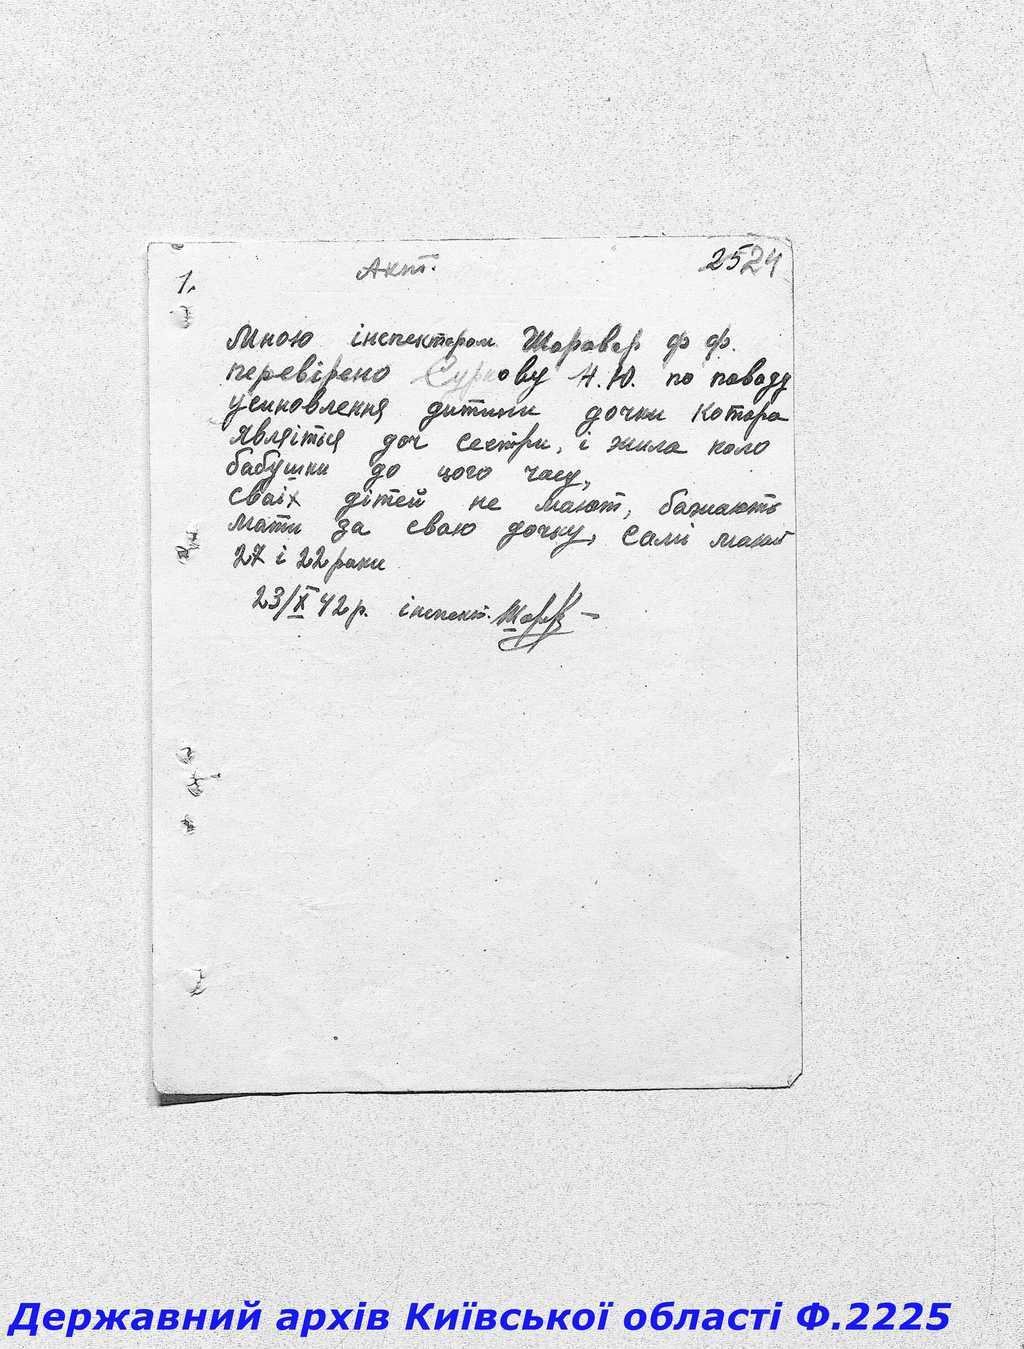 1.
Акт.
2524
Мною інспектором Шаравар Ф Ф.
перевірено Суркову Н.Ю. по поводу
усиновлення дитини дочки котора
являїться доч сестри, і жила коло
бабушки до цого часу,
своїх дітей не мают, бажають
мати за свою дочку, сами мають
27 і 22 роки
23/X 42р. інспект.
Державний архів Київської області Ф.2225